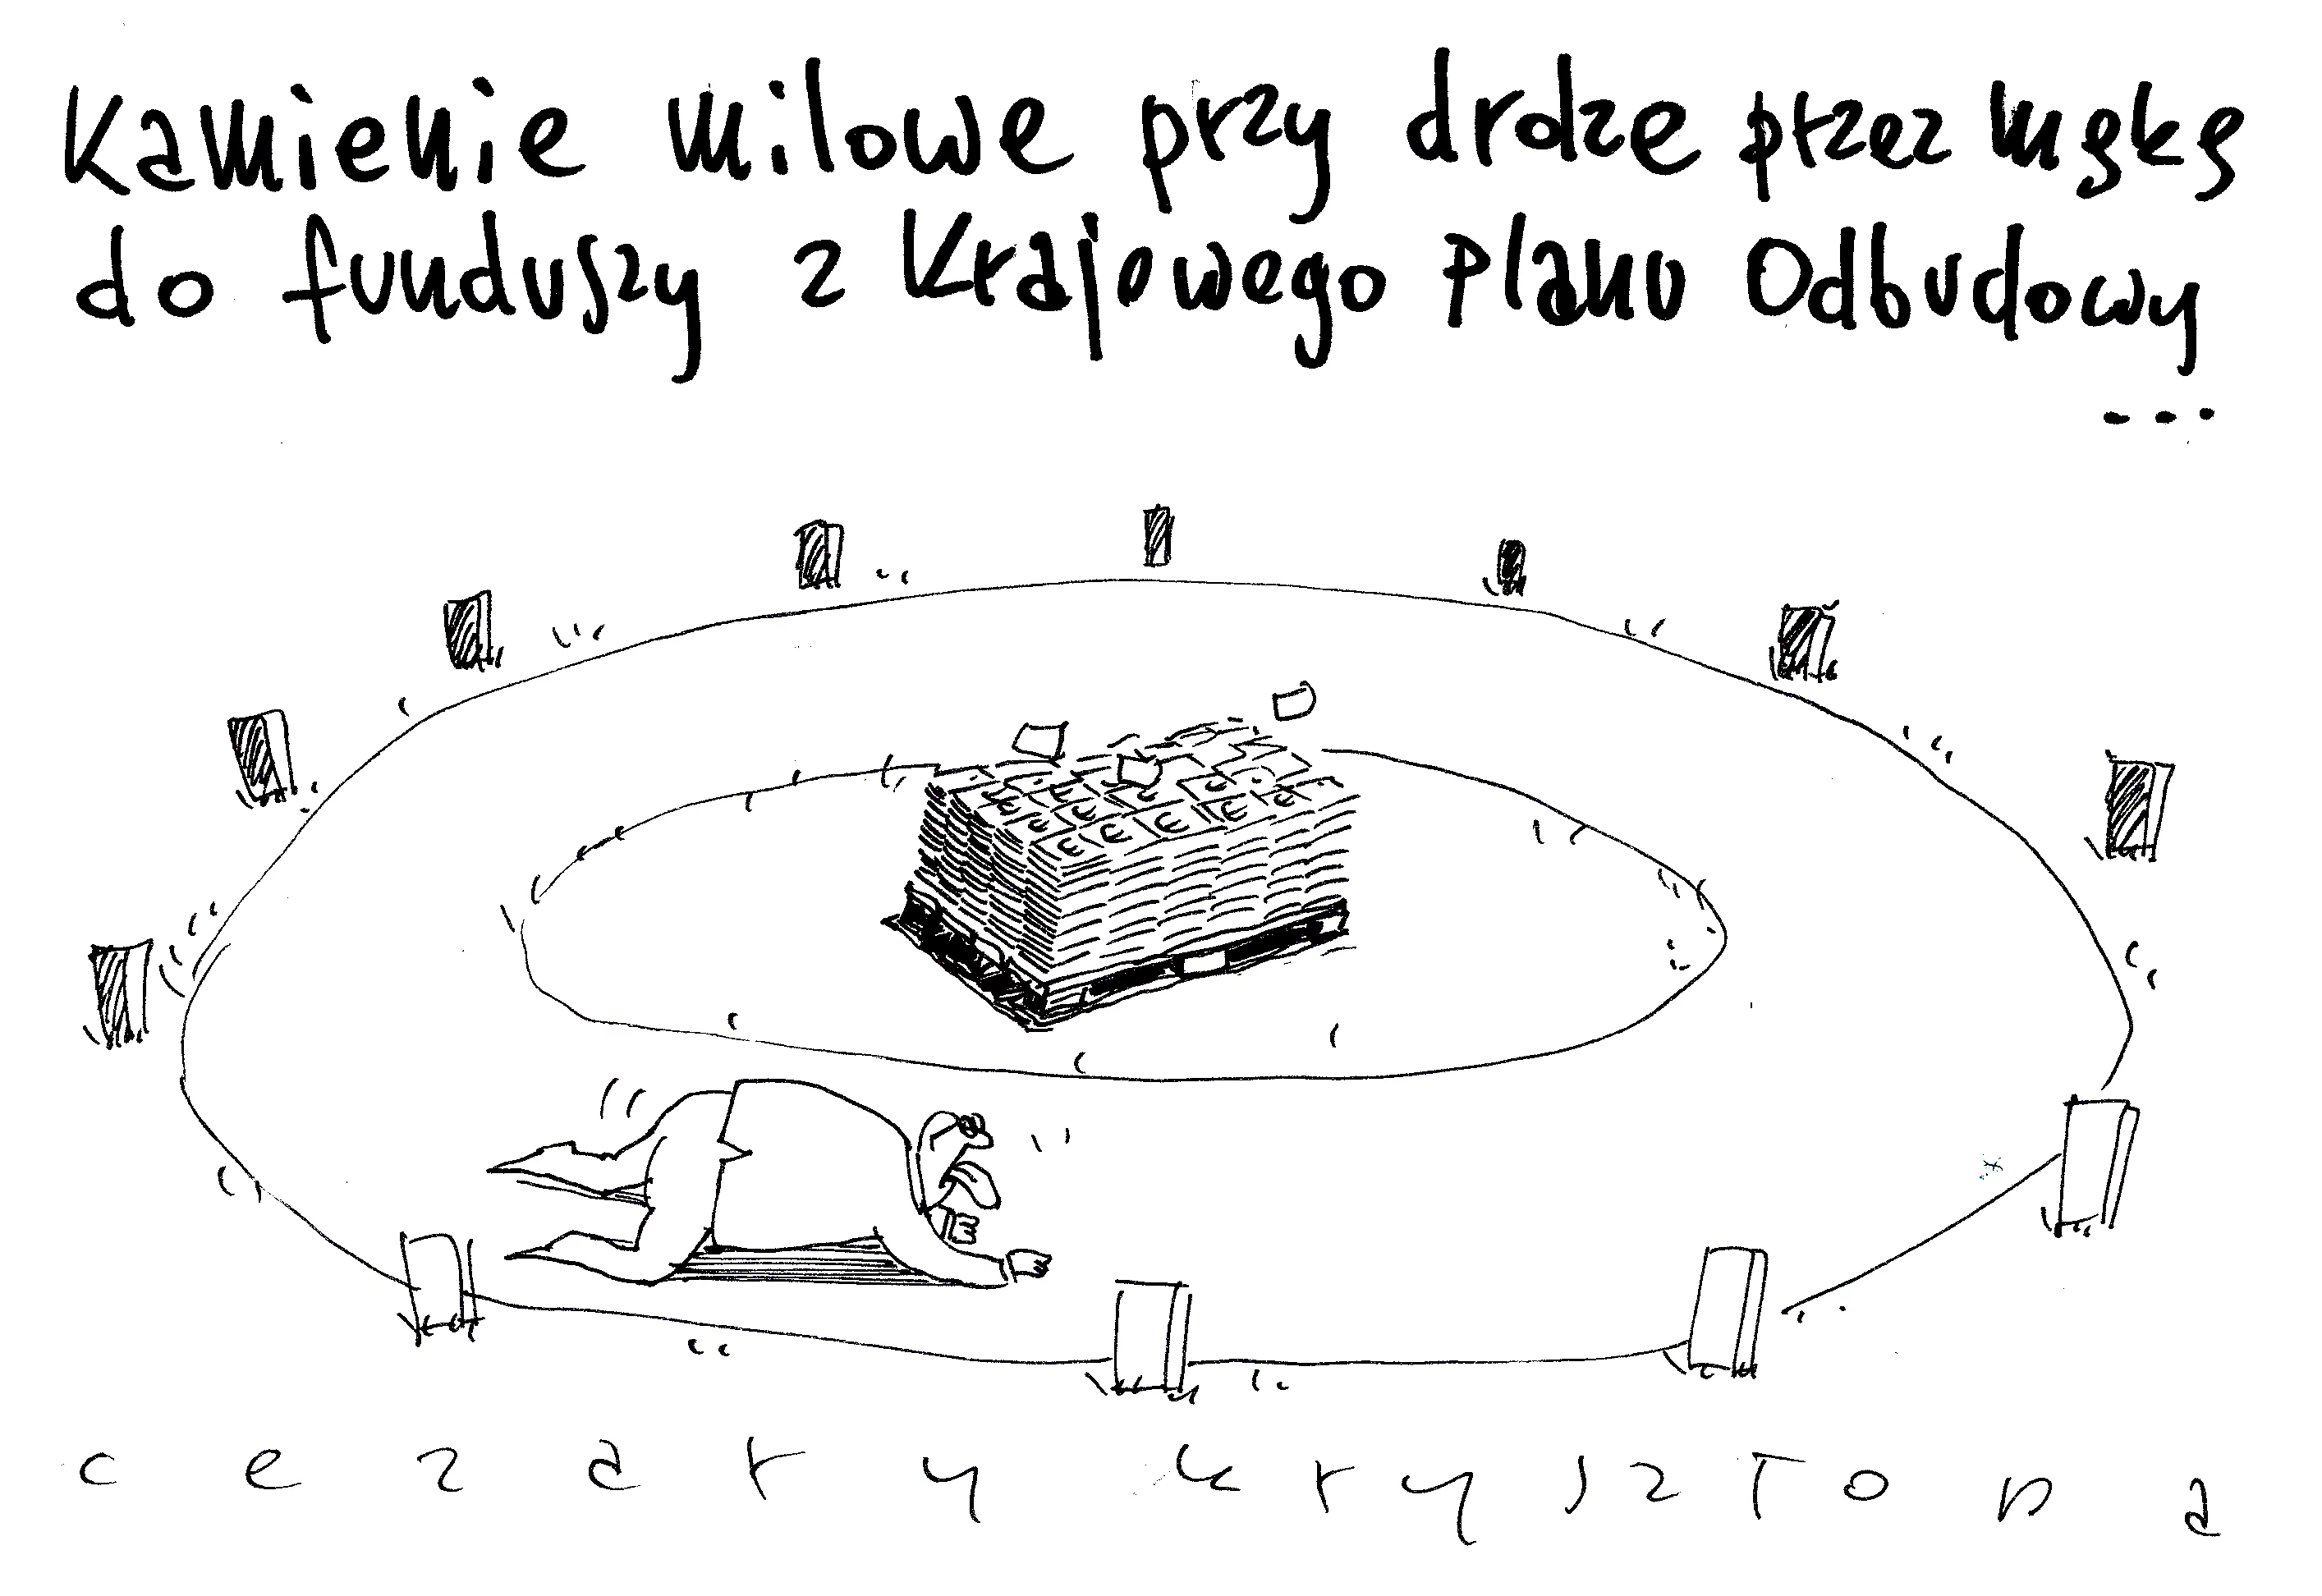 Kamienie milowe przy drodze przez mękę
do funduszy z Krajowego Planu Odbudowy
...
€ € € € € € € € € € €
cezary krysztopa